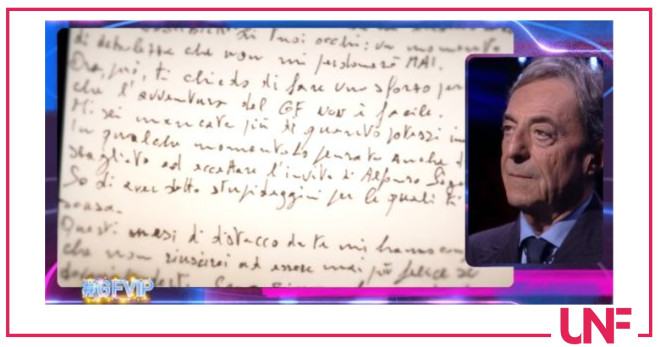 di tuoi occhi: un momento
di debolezza che non mi perdonerò MAI.
Ora, però, ti chiedo di fare uno sforzo per
che l'avventura del GF non è facile.
Mi sei mancata più di quanto potessi
In qualche momento ho pensato anche d
sbagliato ad accettare l'invito di Alfonso
So di aver detto stupidaggini per le quali ti
scusa.
Questi mesi di distacco da te mi hanno
che non riuscirei ad essere mai più felice se
#GFVIP
UNF